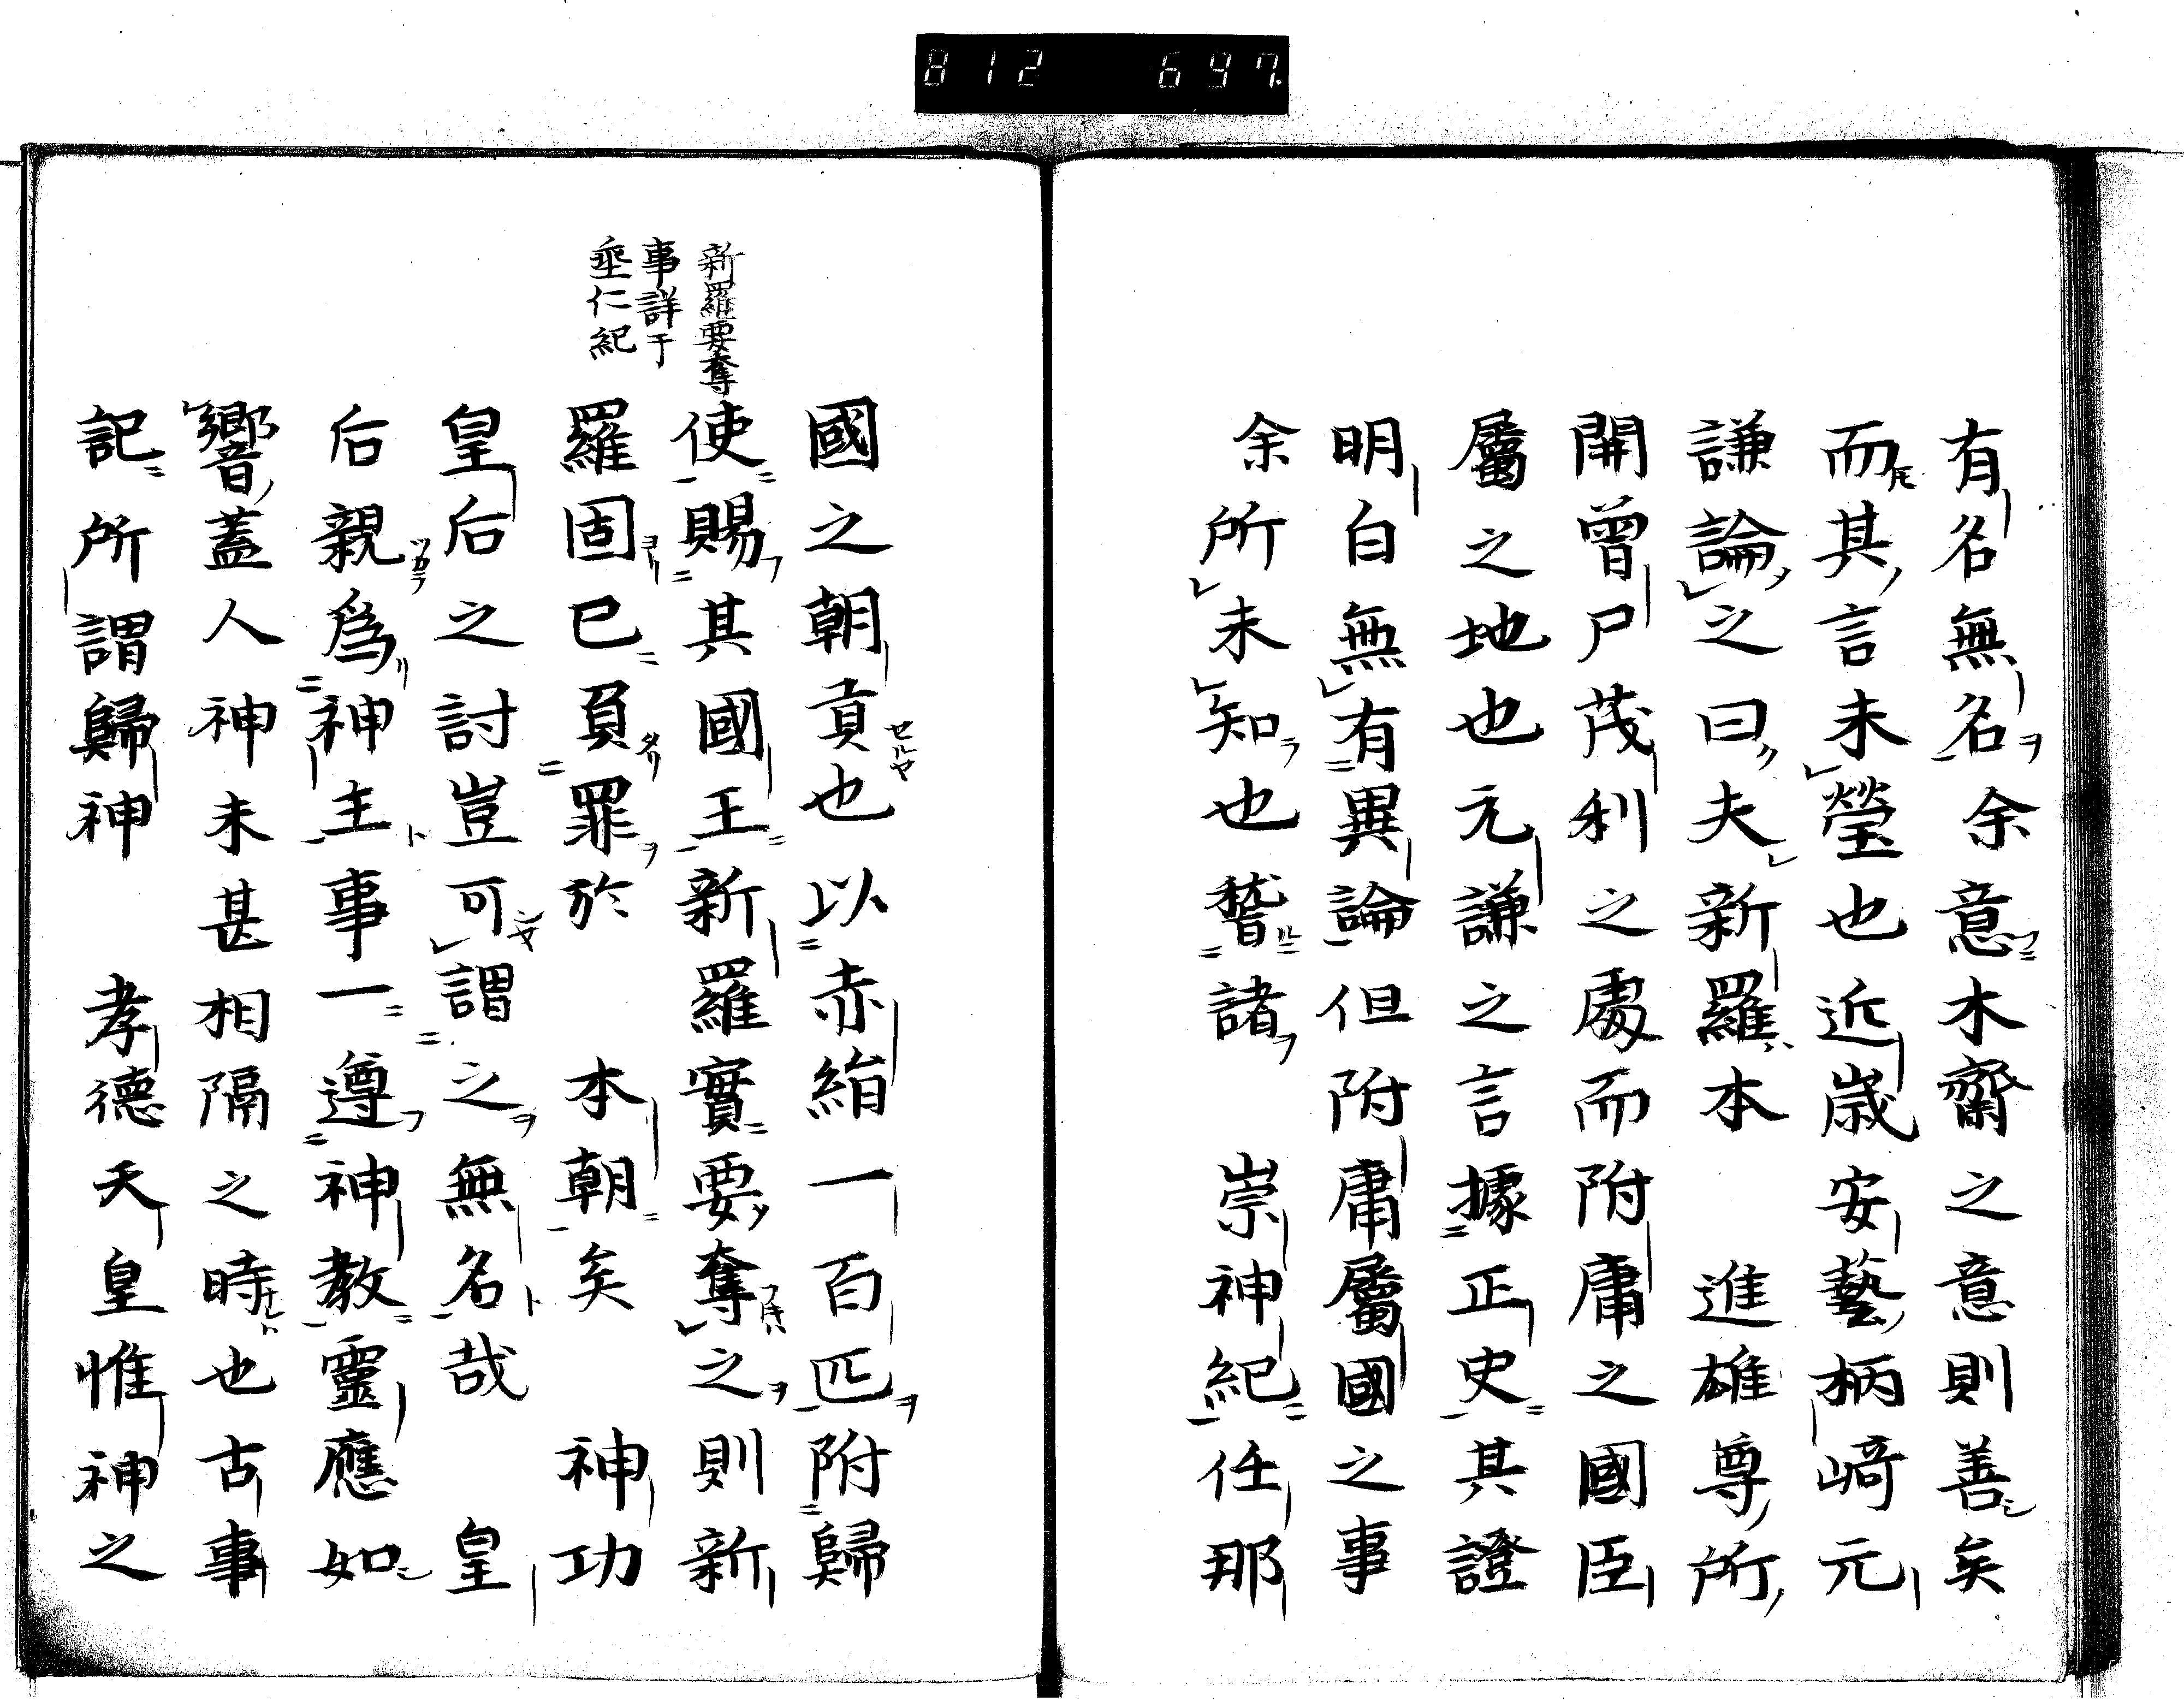 812 697.
有名無名余意木齋之意則善矣
而其言未瑩也近歳安藝柄﨑元
謙論之曰夫新羅本 進雄尊所
開曾尸茂利之處而附庸之國臣
屬之地也元謙之言據正史其證
明白無有異論但附庸屬國之事
余所未知也稽諸 崇神紀任那
國之朝貢也以赤絹一百匹附歸
使賜其國王新羅實要奪之則新
羅固已負罪於 本朝矣 神功
皇后之討豈可謂之無名哉 皇
后親爲神主事一遵神教靈應如
響蓋人神未甚相隔之時也古事
記所謂歸神 孝德天皇惟神之
新羅要奪
事詳于
垂仁紀